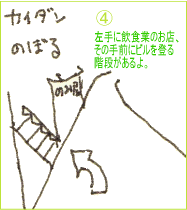 カイダン
のぼる
④
左手に飲食業のお店、
その手前にビルを登る
階段があるよ。
のみ屋